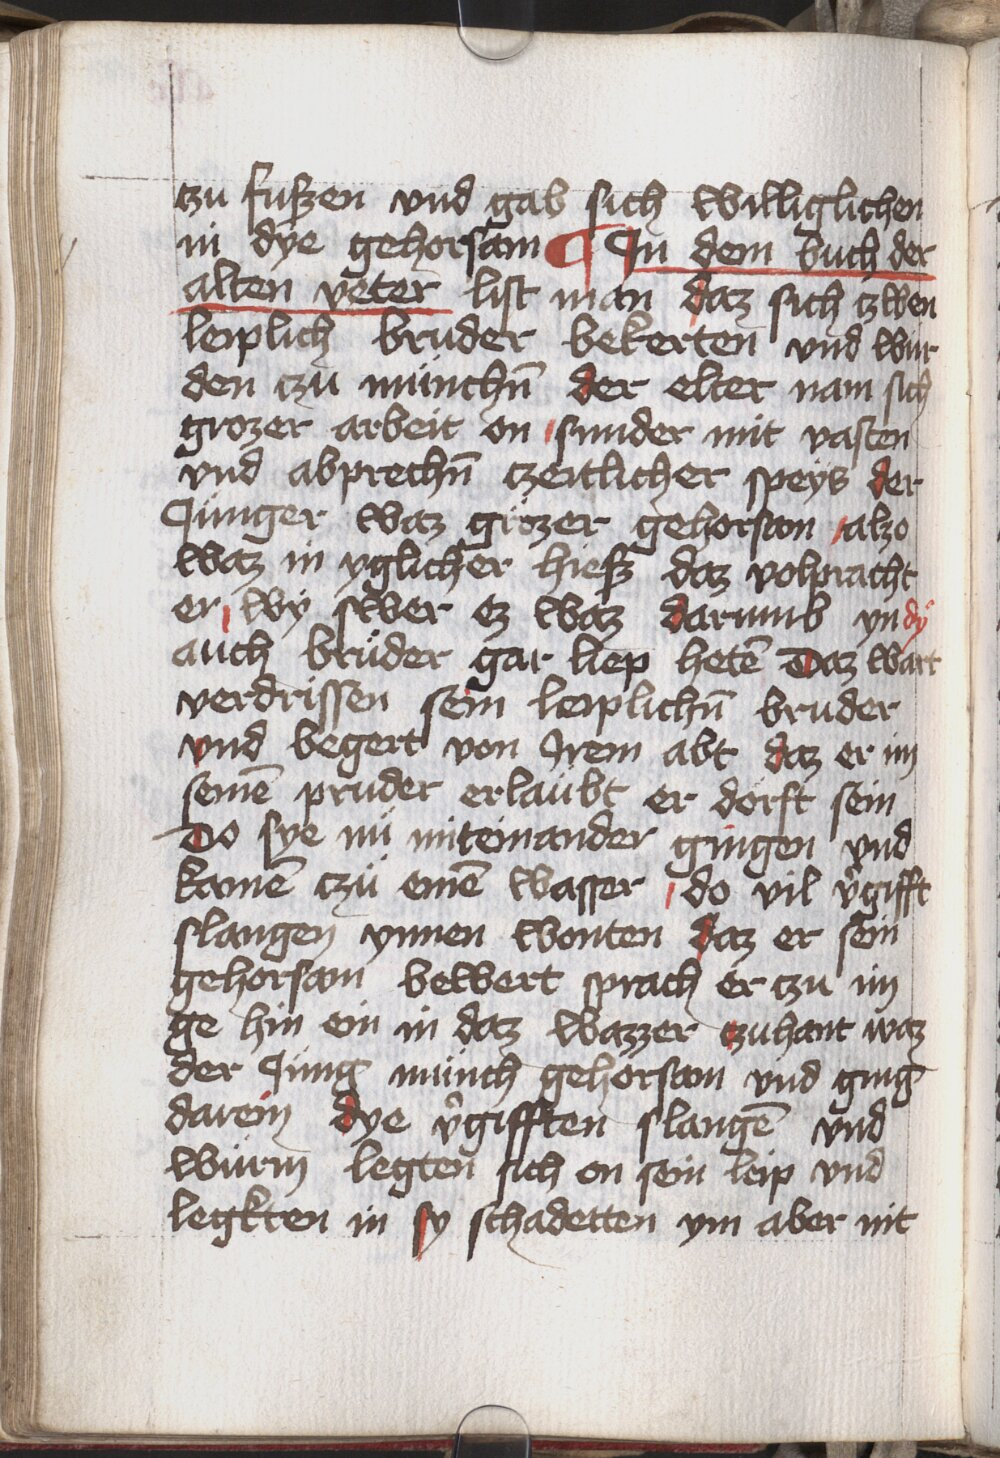 czu fuſzen vnd gab sich williglichen
in dÿe gehorsam ¶ In dem buch der
alten veter list man daz sich czwen
leiplich bruder bekerten vnd wur
den czu münchn̄ der elter nam sich
grozer arbeit on / sunder mit vasten
vnd abprechn̄ czeitlicher speÿs der
Jünger waz grozer gehorsam / alzo
waz in yglicher hiesz daz volpracht
er / wÿ swer ez waz darumb yn dÿ
auch brüder gar liep hetē Daz wart
verdrissen sein leiplichn̄ bruder
vnd begert von Irem abt daz er im
seinē pruder erlaubt er dorft sein
Do sÿe nü miteinander gingen vnd
kamē czü einē wasser / do vil v̉gifft
slangen ynnen wonten daz er sein
gehorsam bewert sprach er czu im
ge hin ein in daz wazzer czuhant waz
der Jüng münch gehorsam vnd ging
darein dye v̉gifften slangē vnd
würm legten sich on sein leip vnd
legkten in sy schadetten ym aber nit